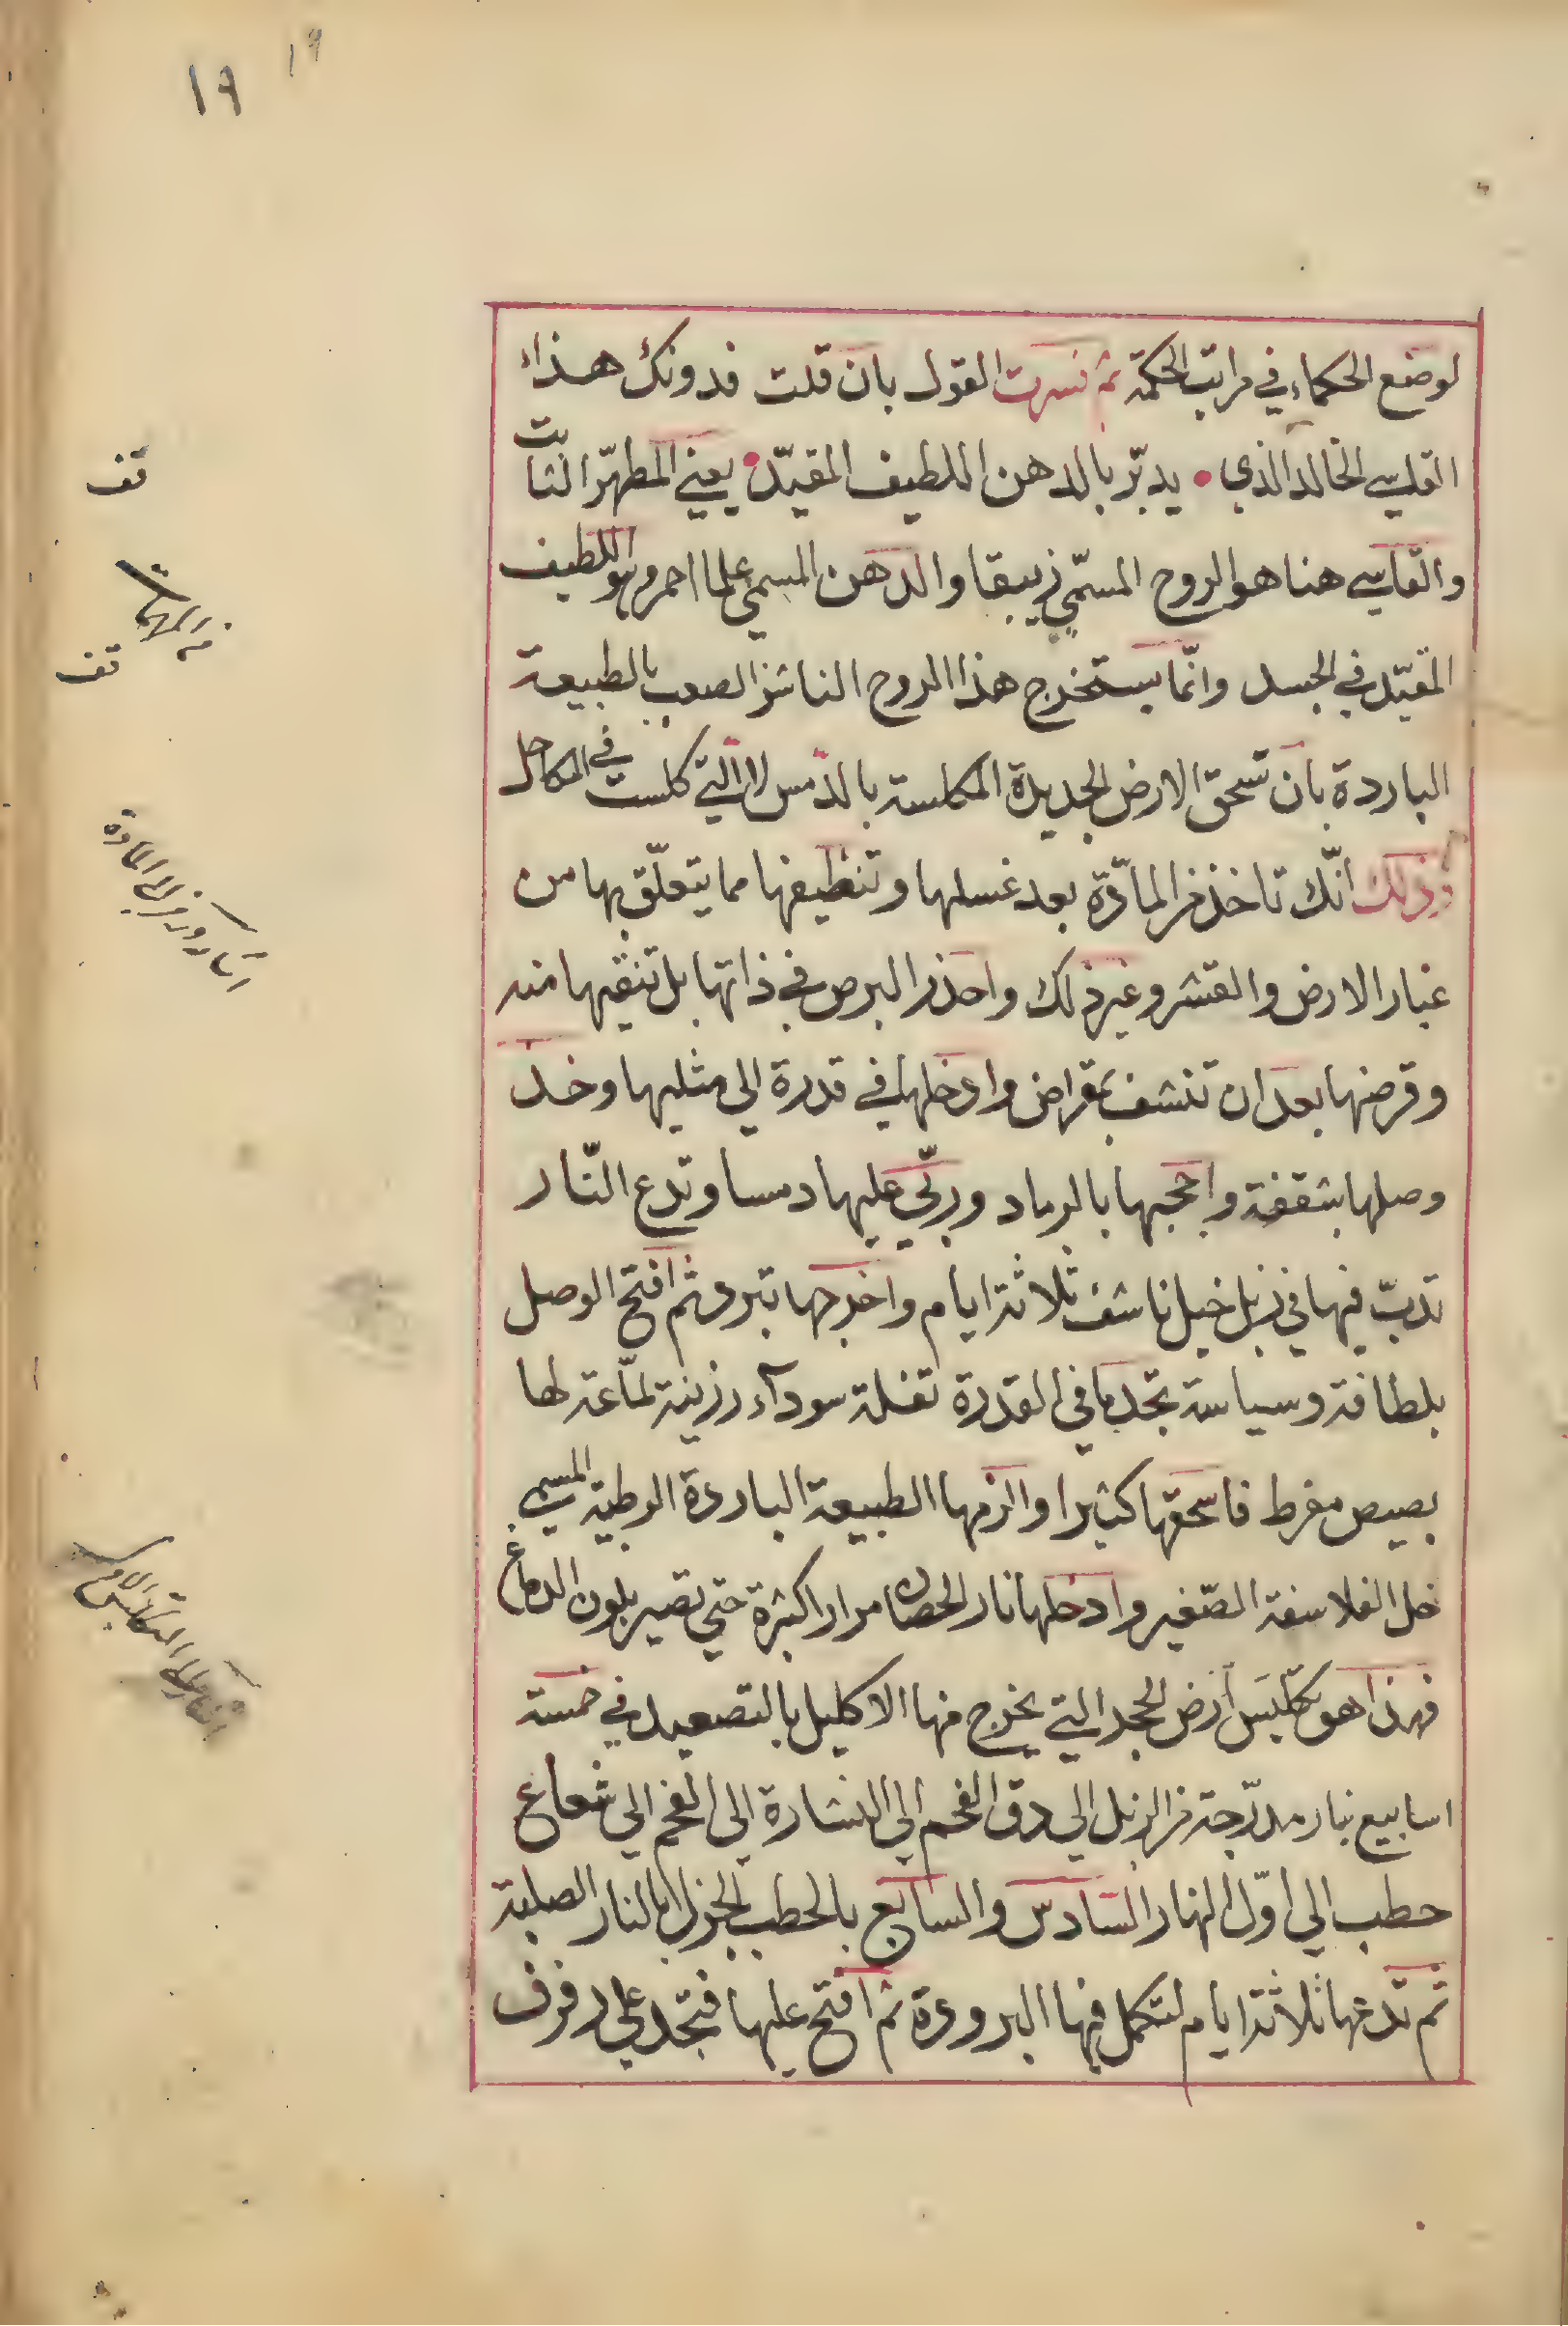 ١٩ ١٩
لوضع الحكماء في مراتب الحكمة ثم فسرت القول بان قلت فدونك هذا
القاسي الخالد الذي • يدبّر بالدهن اللطيف المقيّد • يعني المطهّر الثابت
والقاسي هنا هو الروح المسمّي زيبقا والدهن المسمي علما احمر وهو اللطيف
المقيّد في الجسد وانّما يستخرج هذا الروح الناشز الصعب بالطبيعة
الباردة بان تسحق الارض الجديدة المكلسة بالدمس التي كلست في المكاحل
وذلك انّك تاخذ من المادّة بعد غسلها وتنظيفها مما يتعلّق بها من
غبار الارض والقشر وغير ذلك واحذر البرص في ذاتها بل تنقيها منه
وقرضها بعد ان تنشف بمقراض وادخلها في قدرة الى مثليها وخذ
وصلها بشقفة واحجبها بالرماد وربّي عليها دمسا وتدع النّار
تدبّ فيها في زبل خيل ناشف ثلاثة ايام واخرجها تبرد ثم افتح الوصل
بلطافة وسياسة تجدها في القدرة تفلة سودآء رزينة لمّاعة لها
بصيص مفرط فاسحقها كثيرا والزمها الطبيعة الباردة الرطبة المسمي
خل الفلاسفة الصّغير وادخلها نار الحضان مرارا كثيرة حتي تصير بلون الدماغ
فهذا هو تكليس أرض الحجر التي يخرج منها الاكليل بالتصعيد في خمسة
اسابيع بنار مدرّجة من الزبل الي دق الفحم الي النشارة الي الفحم الي شعاع
حطب الي اوّل النهار السّادس والسابع بالحطب الجزل بالنار الصلبة
ثم تدعها ثلاثة ايام لتكمل فيها البرودة ثم افتح عليها فتجد علي رفرف
قف
من المهمات
قف